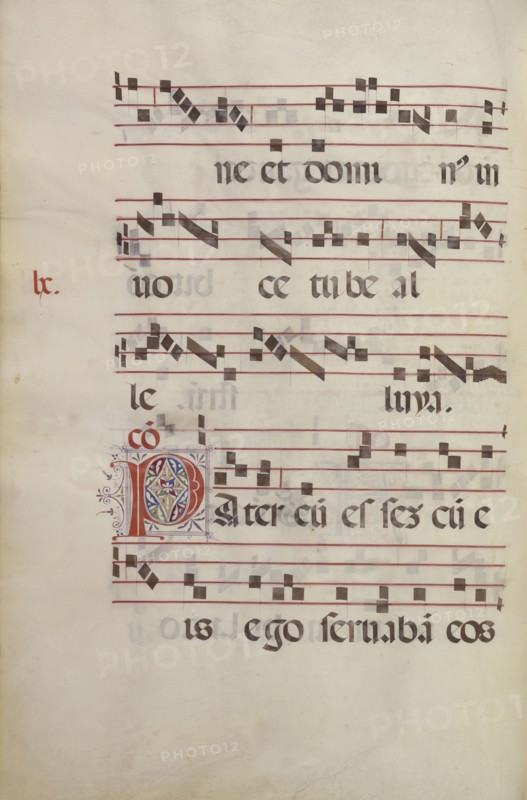 ne et domi nꝰ in
lx. uo ce tu be al
le luya.
cō
PAter cū eſ ſez cū e
is ego ſeruabā eos